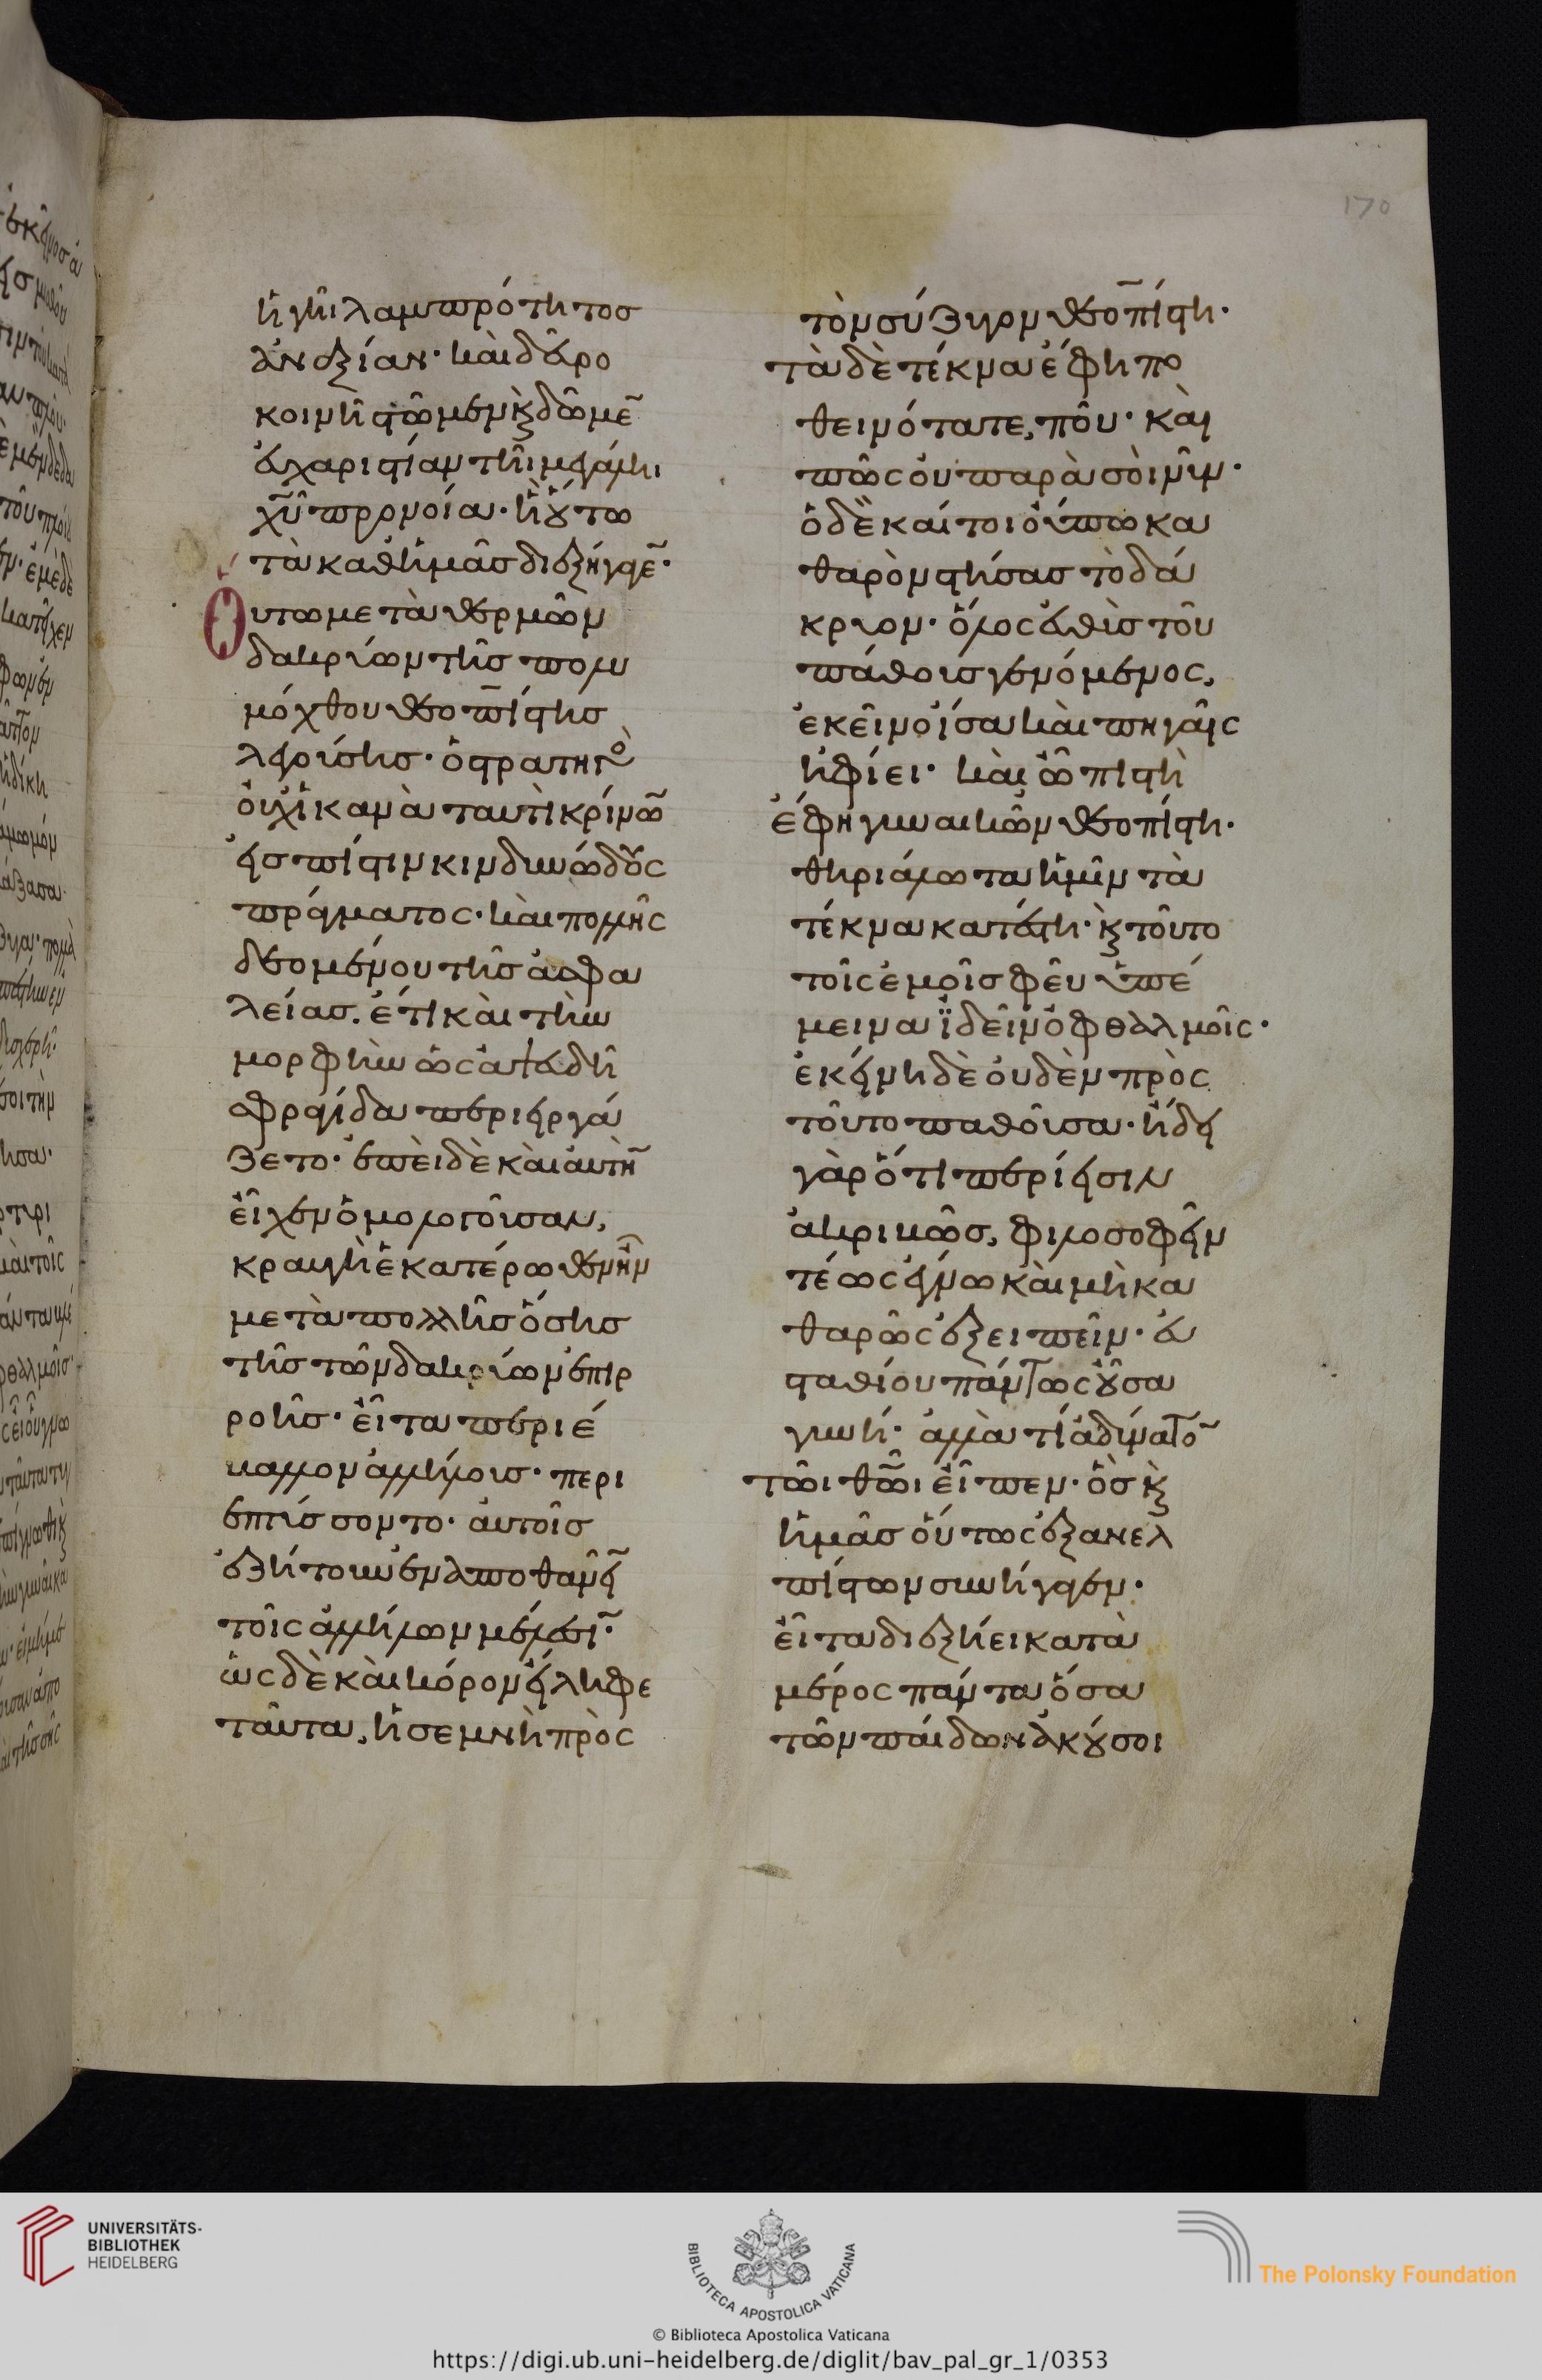 ἡγῆι λαμπρότητος
ἀναξίαν· καὶ δεῦρο
κοινῆ στῶμεν κ(αὶ) δῶμε(ν)
εὐχαριστίαν τῆι μεγάλη
χῡ προνοία· ἢ οὕτω
τὰ καθ ἡμᾶς διεξήγαγε(ν)·
Οὕτω μετὰ θερμῶν
δακρύων τῆς πολυ
μόχθου θεοπίστης
λεγούσης· ὁ στρατηγὸ(ς)
οὐχ ἱκανὰ ταυτὶ κρίνω(ν)
εἰς πίστιν κινδυνώδους
πράγματος· καὶ πολλῆς
δεομένου τῆς ἀσφα
λείας. ἔτι καὶ τὴν
μορφὴν ὡς ἀψευδῆ
σφραγίδα περιειργά
ζετο· ἐπεὶ δὲ καὶ αὐτὴ(ν)
εἶχεν ὁμολογοῦσαν,
κραυγὴ ἑκατέρωθεν ἦν
μετὰ πολλῆς ὅσης
τῆς τῶν δακρύων ἐπιρ
ροῆς· εἶτα περιέ
βαλλον ἀλλήλους· περι
επτύσσοντο· αὐτοῖς
ἐζήτουν ἐναποθανεῖ(ν)
τοῖς ἀλλήλων μέλεσι(ν)·
ὡς δὲ καὶ κόρον εἴληφε
ταῦτα, ἡ σεμνὴ πρὸς
τὸν σύζυγον θεοπίστη·
τὰ δὲ τέκνα ἔφη πο
θεινότατε, ποῦ· καὶ
πῶς οὐ παρὰ σοὶ νῦν·
ὁ δὲ καίτοι οὔπω κα
θαρὸν στήσας τὸ δά
κρυον· ὅλος αὖθις τοῦ
πάθους γενόμενος,
ἐκεῖνο ἴσα καὶ πηγαῖς
ἠφίει· καὶ ὦ πιστὴ
ἔφη γυναικῶν θεοπίστη·
θηριάλωτα ἡμῖν τὰ
τέκνα κατέστη· κ(αὶ) τοῦτο
τοῖς ἐμοῖς φεῦ ὑπέ
μεινα ἰδεῖν ὀφθαλμοῖς·
ἐκείνη δὲ οὐδὲν πρὸς
τοῦτο παθοῦσα· ἤδει
γὰρ ὅτι περίεισιν
ἀκριβῶς, φιλοσοφεῖν
τέως καὶ μὴ κα
θαρῶς ἐξειπεῖν· εὐ
σταθίου πάντως οὖσα
γυνή· ἀλλὰ τί ἀδύνατο(ν)
τῶι θ̄ῶι εἶπεν· ὃς κ(αὶ)
ἡμᾶς οὕτως ἐξ ἀνελ
πίστων συνήγαγεν·
εἶτα διεξήει κατὰ
μέρος πάντα ὅσα
τῶν παίδων ἀκούσοι
170
UNIVERSITÄTS-
BIBLIOTHEK
HEIDELBERG
BIBLIOTECA APOSTOLICA VATICANA
The Polonsky Foundation
© Biblioteca Apostolica Vaticana
https://digi.ub.uni-heidelberg.de/diglit/bav_pal_gr_1/0353